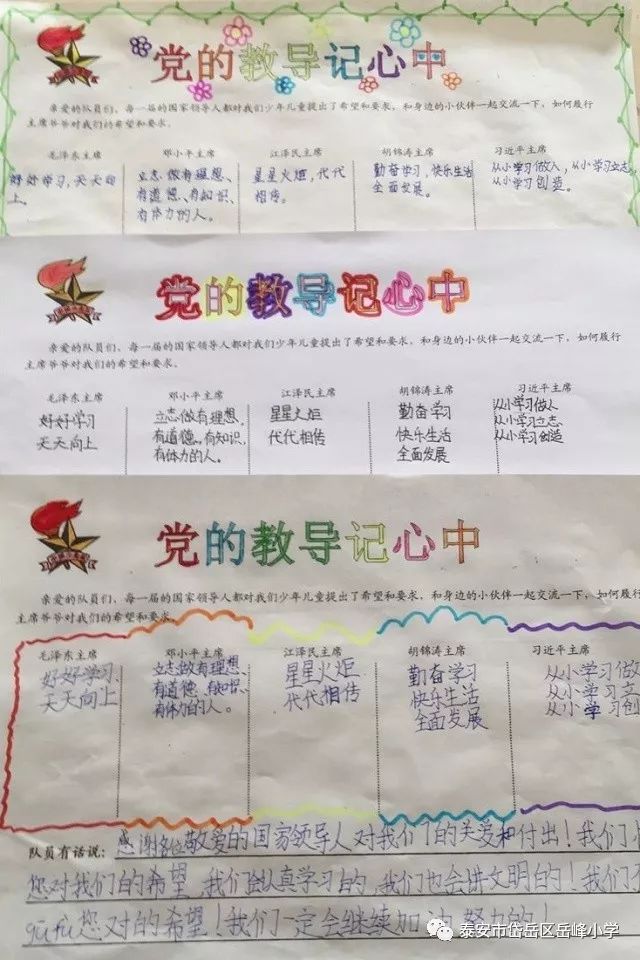 党的教导记心中
亲爱的队员们，每一届的国家领导人都对我们少年儿童提出了希望和要求，和身边的小伙伴一起交流一下，如何履行
主席爷爷对我们的希望和要求。
毛泽东主席
好好学习，天天向
上。
邓小平主席
立志做有理想、
有道德、有知识、
有体力的人。
江泽民主席
星星火炬，代代
相传。
胡锦涛主席
勤奋学习，快乐生活
全面发展。
习近平主席
从小学习做人，从小学习立志，
从小学习创造。
党的教导记心中
亲爱的队员们，每一届的国家领导人都对我们少年儿童提出了希望和要求，和身边的小伙伴一起交流一下，如何履行
主席爷爷对我们的希望和要求。
毛泽东主席
好好学习
天天向上
邓小平主席
立志做有理想，
有道德，有知识，
有体力的人。
江泽民主席
星星火炬
代代相传
胡锦涛主席
勤奋学习
快乐生活
全面发展
习近平主席
从小学习做人
从小学习立志
从小学习创造
党的教导记心中
亲爱的队员们，每一届的国家领导人都对我们少年儿童提出了希望和要求，和身边的小伙伴一起交流一下，如何
主席爷爷对我们的希望和要求。
毛泽东主席
好好学习
天天向上
邓小平主席
立志做有理想
有道德、有知识、
有体力的人。
江泽民主席
星星火炬
代代相传
胡锦涛主席
勤奋学习
快乐生活
全面发展
习近平主席
从小学习做
从小学习立
从小学习创
队员有话说：感谢各位敬爱的国家领导人对我们的关爱和付出！我们
您对我们的希望，我们会认真学习的，我们也会讲文明的！我们
gū fù您对的希望！我们一定会继续加油努力的！
泰安市岱岳区岳峰小学